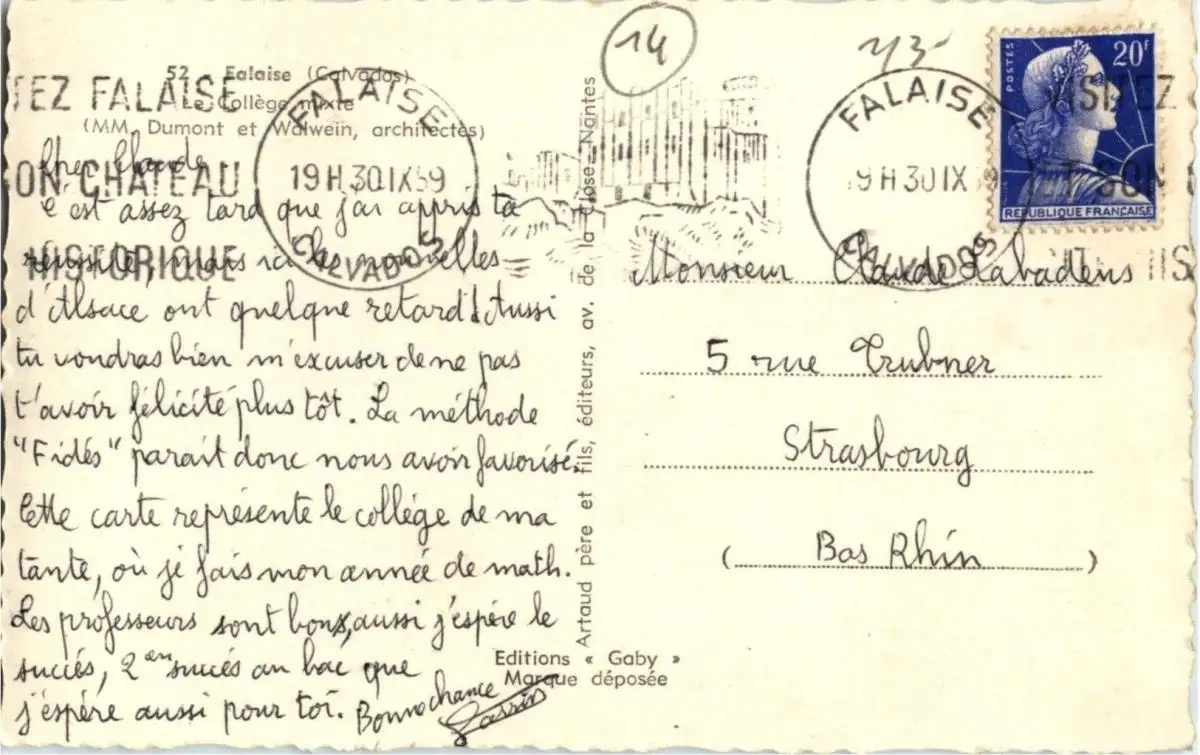 14
52 Falaise (Calvados)
Le Collège mixte
(MM. Dumont et Walwein, architectes)
TEZ FALAISE
ON CHATEAU
HISTORIQUE
FALAISE
19H30 IX 59
CALVADOS
FALAISE
19H30 IX 59
CALVADOS
ISITEZ
SON
HIS
POSTES
20F
REPUBLIQUE FRANÇAISE
Cher Claude
c'est assez tard que j'ai appris ta
réussite, mais ici les nouvelles
d'Alsace ont quelque retard! Aussi
tu voudras bien m'excuser de ne pas
t'avoir félicité plus tôt. La méthode
"Fidés" parait donc nous avoir favorisé.
Cette carte représente le collége de ma
tante, où je fais mon année de math.
Les professeurs sont bons, aussi j'espére le
succés, 2em succés au bac que
j'espére aussi pour toi. Bonne chance
Artaud père et fils, éditeurs, av. de la Close Nantes
Editions « Gaby »
Marque déposée
Monsieur Claude Labadens
5 rue Trubner
Strasbourg
(Bas Rhin)